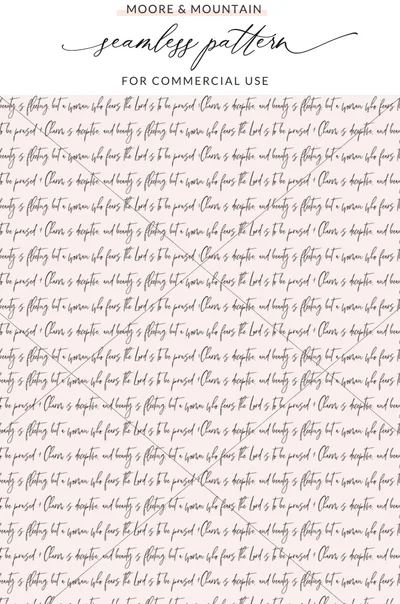 MOORE & MOUNTAIN
seamless pattern
FOR COMMERCIAL USE
beauty is fleeting but a woman who fears the Lord is to be praised • Charm is deceptive, and beauty is fleeting but a woman who fears
to be praised • Charm is deceptive, and beauty is fleeting but a woman who fears the Lord is to be praised • Charm is deceptive, and
beauty is fleeting but a woman who fears the Lord is to be praised • Charm is deceptive, and beauty is fleeting but a woman who fears
to be praised • Charm is deceptive, and beauty is fleeting but a woman who fears the Lord is to be praised • Charm is deceptive, and
beauty is fleeting but a woman who fears the Lord is to be praised • Charm is deceptive, and beauty is fleeting but a woman who fears
to be praised • Charm is deceptive, and beauty is fleeting but a woman who fears the Lord is to be praised • Charm is deceptive, and
beauty is fleeting but a woman who fears the Lord is to be praised • Charm is deceptive, and beauty is fleeting but a woman who fears
to be praised • Charm is deceptive, and beauty is fleeting but a woman who fears the Lord is to be praised • Charm is deceptive, and
beauty is fleeting but a woman who fears the Lord is to be praised • Charm is deceptive, and beauty is fleeting but a woman who fears
to be praised • Charm is deceptive, and beauty is fleeting but a woman who fears the Lord is to be praised • Charm is deceptive, and
beauty is fleeting but a woman who fears the Lord is to be praised • Charm is deceptive, and beauty is fleeting but a woman who fears
beauty is fleeting but a woman who fears the Lord is to be praised • Charm is deceptive, and beauty is fleeting but a woman who fears
to be praised • Charm is deceptive, and beauty is fleeting but a woman who fears the Lord is to be praised • Charm is deceptive, and
beauty is fleeting but a woman who fears the Lord is to be praised • Charm is deceptive, and beauty is fleeting but a woman who fears
to be praised • Charm is deceptive, and beauty is fleeting but a woman who fears the Lord is to be praised • Charm is deceptive, and
beauty is fleeting but a woman who fears the Lord is to be praised • Charm is deceptive, and beauty is fleeting but a woman who fears
to be praised • Charm is deceptive, and beauty is fleeting but a woman who fears the Lord is to be praised • Charm is deceptive, and
beauty is fleeting but a woman who fears the Lord is to be praised • Charm is deceptive, and beauty is fleeting but a woman who fears
to be praised • Charm is deceptive, and beauty is fleeting but a woman who fears the Lord is to be praised • Charm is deceptive, and
beauty is fleeting but a woman who fears the Lord is to be praised • Charm is deceptive, and beauty is fleeting but a woman who fears